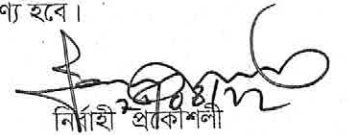 ণ্য হবে।
নির্বাহী প্রকৌশলী